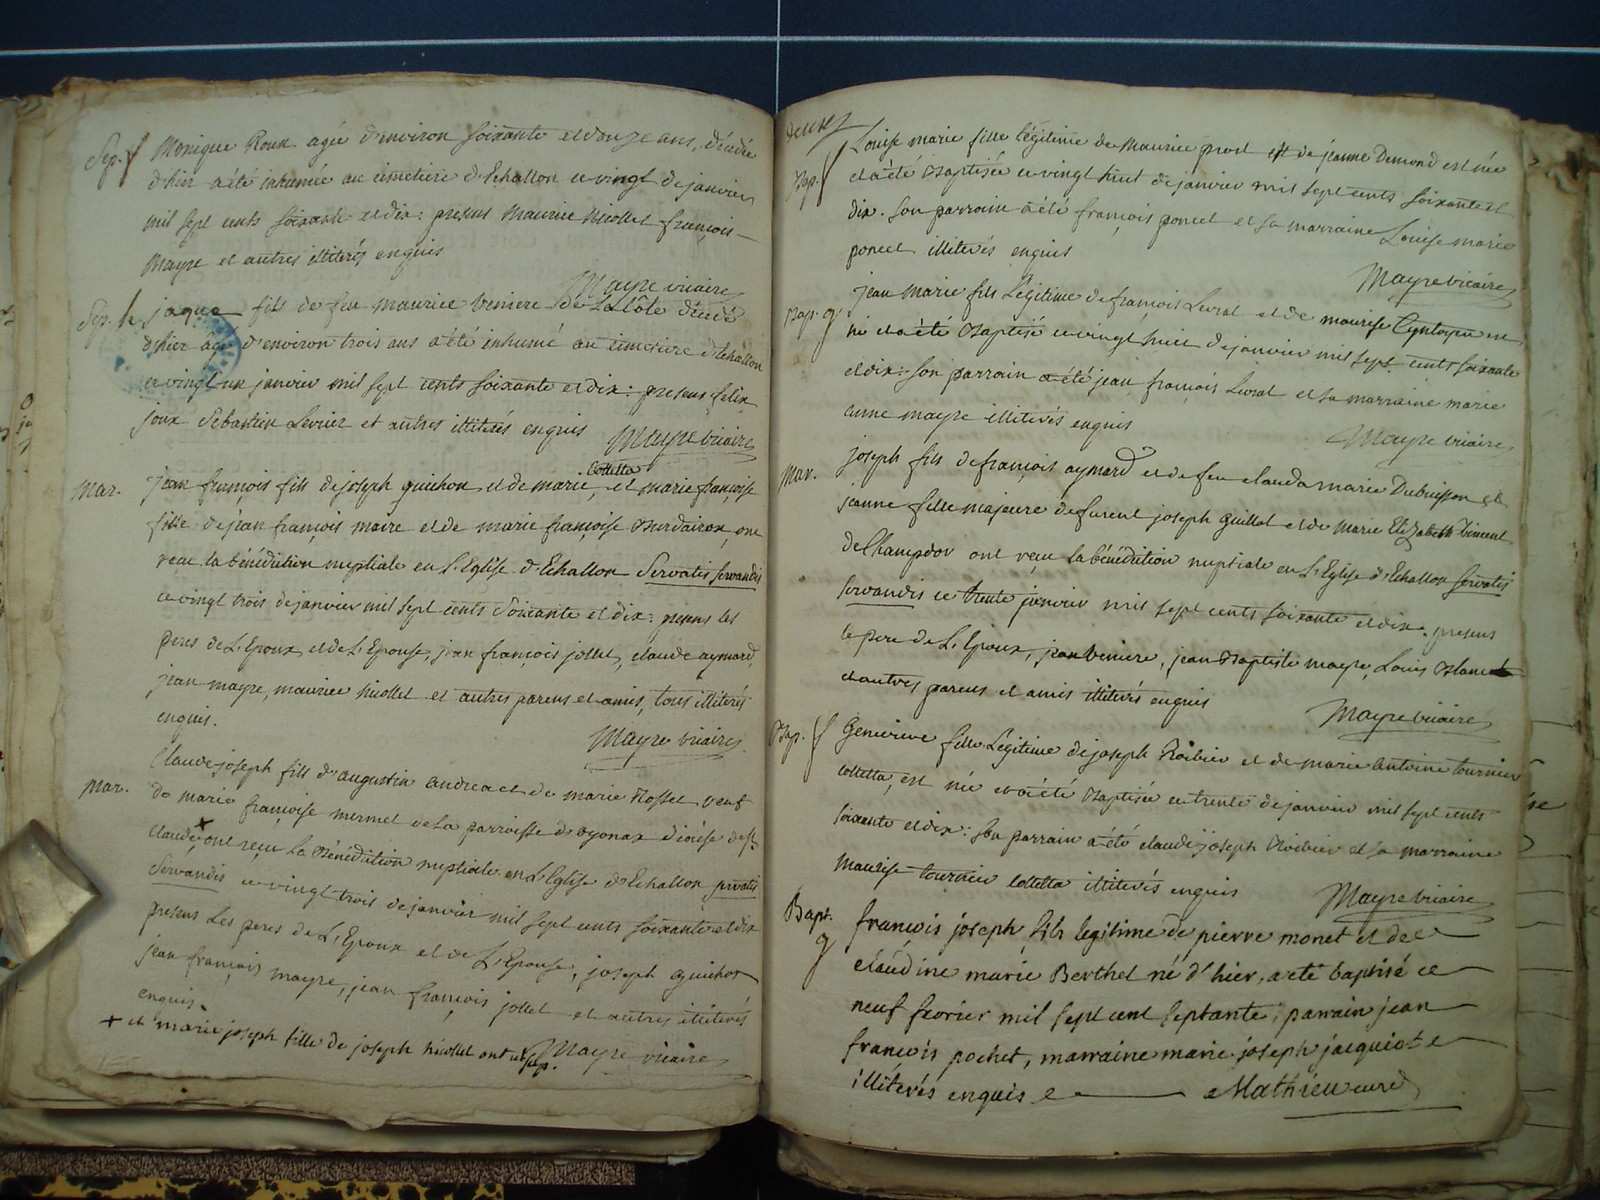 Sep. f Monique Roux agée d'environ soixante et douze ans, décédée
d'hier a été inhumée au cimetiere d'Echallon ce vingt de janvier
mil sept cents soixante et dix: presens Maurice Nicollet françois
Mayre et autres illiterés enquis
Mayre vicaire
Sep. h jaque fils de feu maurice veniere de L côte décédé
d'hier agé d'environ trois ans a été inhumé au cimetiere d'Echallon
ce vingt un janvier mil sept cents soixante et dix: presens felix
joux Sebastien Levrier et autres illiterés enquis Mayre vicaire
Colletta
Mar. jean françois fils de joseph guichon et de marie, et marie françoise
fille de jean françois maire et de marie françoise Burdairon, ont
reçu la bénédiction nuptiale en L'Eglise d'Echallon Servatis servandis
ce vingt trois de janvier mil sept cents soixante et dix: presens les
peres de L'Epoux et de L'Epouse, jean françois jollet, claude aymard,
jean mayre, maurice nicollet et autres parens et amis, tous illiterés
enquis. Mayre vicaire
Mar. Claude joseph fils d'augustin andrea et de marie Rosset veuf
de marie françoise mermet de la parroisse d'oyonax diocèse de St
claude + ont reçu la Bénédiction nuptiale en L'Eglise d'Echallon servatis
Servandis ce vingt trois de janvier mil sept cents soixante et dix
presens Les peres de L'Epoux et de L'Epouse, joseph guichon
jean françois mayre, jean françois jollet et autres illiterés
enquis.
+ et marie joseph fille de joseph nicollet ont Mayre vicaire
Louise marie fille légitime de Maurice prost et de jeanne Demond est née
Bap. f et a été Baptisée ce vingt huit de janvier mil sept cents soixante et
dix. son parrain a été françois poncet et sa marraine Louise marie
poncet illiterés enquis
Mayre vicaire
Bap. g jean Marie fils Légitime de françois Levrat et de maurise
né et a été Baptisé ce vingt huit de janvier mil sept cents soixante
et dix: son parrain a été jean françois Levrat et sa marraine marie
anne mayre illiterés enquis
Mayre vicaire
Mar. joseph fils de françois aymard et de feu clauda marie Dubuisson et
jeanne fille majeure de furent joseph guillot et de Marie Elizabeth vincent
de Champdor ont reçu la bénédiction nuptiale en L'Eglise d'Echallon servatis
servandis ce trente janvier mil sept cents soixante et dix. presens
le pere de L'Epoux, jean veniere, jean Baptiste mayre, Louis Blanc
et autres parens et amis illiterés enquis
Mayre vicaire
Bap. f Genevieve fille Légitime de joseph Roibier et de marie antoine tournier
colletta, est née et a été Baptisée ce trente de janvier mil sept cents
soixante et dix: son parrain a été claude joseph Roibier et sa marraine
maurise tournier colletta illiterés enquis
Mayre vicaire
Bapt. g françois joseph fils legitime de pierre monet et de
claudine marie Berthet né d'hier, a eté baptisé ce
neuf fevrier mil sept cent septante; parrain jean
françois pochet, marraine marie joseph jacquiot
illiterés enquis Mathieu curé